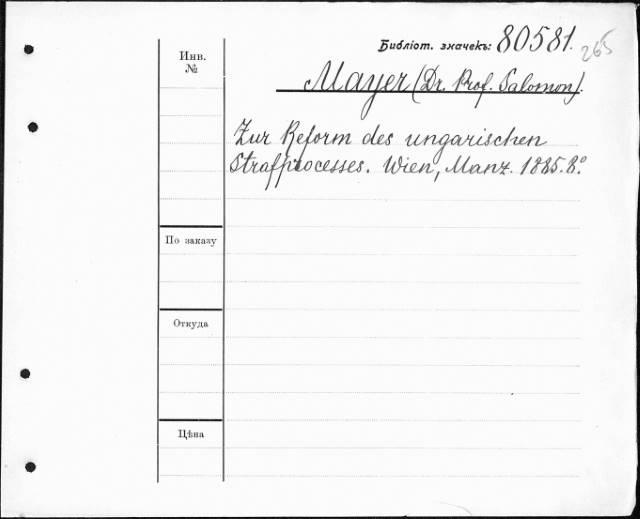 Библіот. значекъ: 80581. 265
Инв.
№
Mayer (Dr. Prof. Salomon).
Zur Reform des ungarischen
Strafprocesses. Wien, Manz. 1885. 8.º
По заказу
Откуда
Цѣна